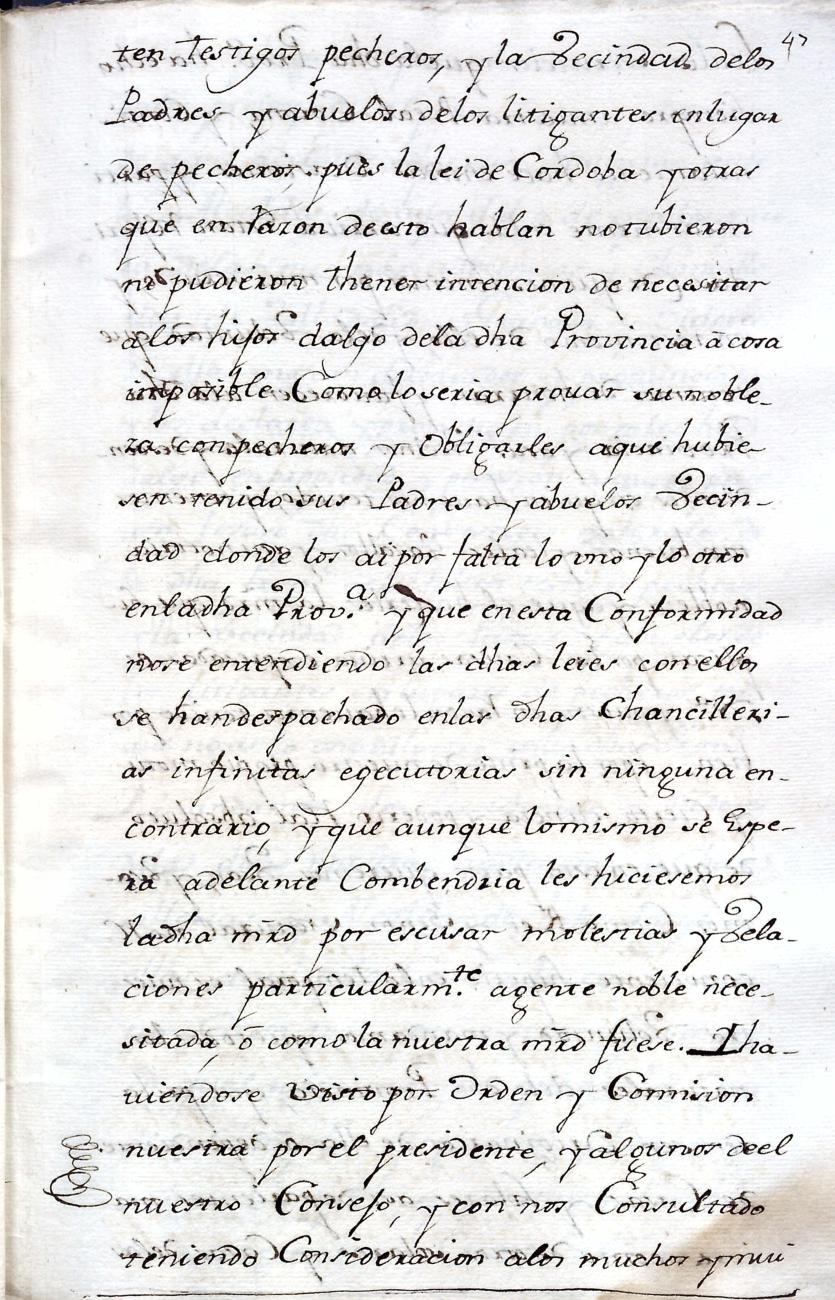 47
ten testigos pecheros, y la Vecindad de los
Padres y abuelos de los litigantes en lugar
de pecheros pues la lei de Cordoba y otras
que en razon de esto hablan no tubieron
ni pudieron thener intencion de necesitar
a los hijos dalgo de la dha Provincia â cosa
imposible Como lo seria provar su noble-
za con pecheros y Obligarles a que hubie-
sen tenido sus Padres y abuelos Vecin-
dad donde los ai por falta lo vno y lo otro
en la dha Prov.ª y que en esta Conformidad
no se entendiendo las dhas leies con ellos
se han despachado en las dhas Chancilleri-
as infinitas egecutorias sin ninguna en-
contrario, y que aunque lo mismo se Espe-
ra adelante Combendria les hiciesemos
la dha mrd por escusar molestias y Vela-
ciones particularm.te a gente noble nece-
sitada, ô como la nuestra mrd fuese. I ha-
viendose visto por Orden y Comision
nuestra por el presidente, y algunos de el
nuestro Consejo, y con nos Consultado
teniendo Consideracion a los muchos y mui